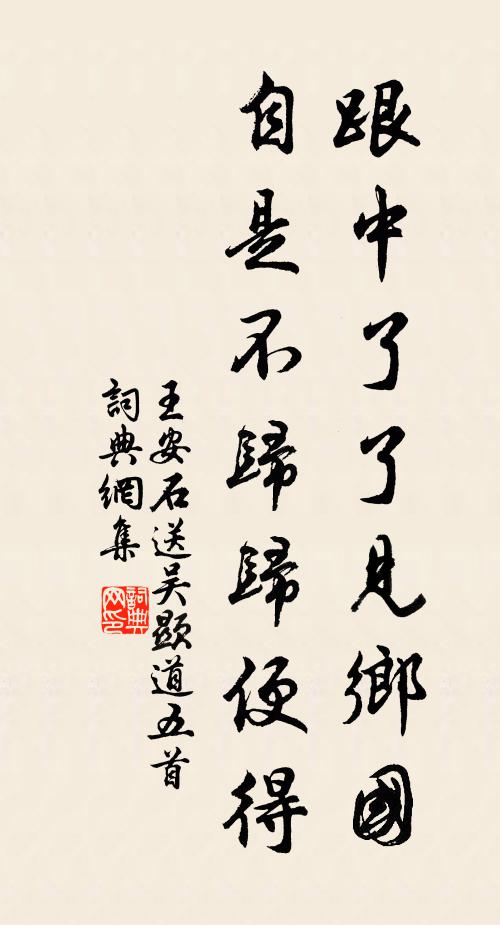 跟中了了見鄉國
自是不歸歸便得
王安石送吴顯道五首
詞典網集
詞典
网印